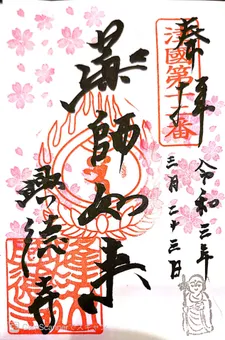 奉拝
津國第十二番
令和三年
三月二十三日
薬師如来
興徳寺